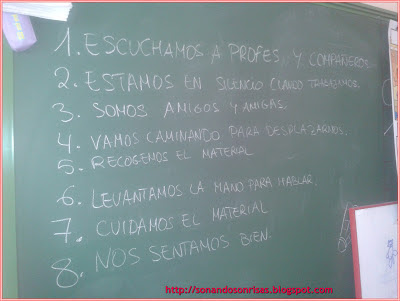 1. ESCUCHAMOS A PROFES. Y COMPAÑEROS.
2. ESTAMOS EN SILENCIO CUANDO TRABAJAMOS.
3. SOMOS AMIGOS Y AMIGAS.
4. VAMOS CAMINANDO PARA DESPLAZARNOS.
5. RECOGEMOS EL MATERIAL
6. LEVANTAMOS LA MANO PARA HABLAR.
7. CUIDAMOS EL MATERIAL
8. NOS SENTAMOS BIEN.
http://sonandosonrisas.blogspot.com